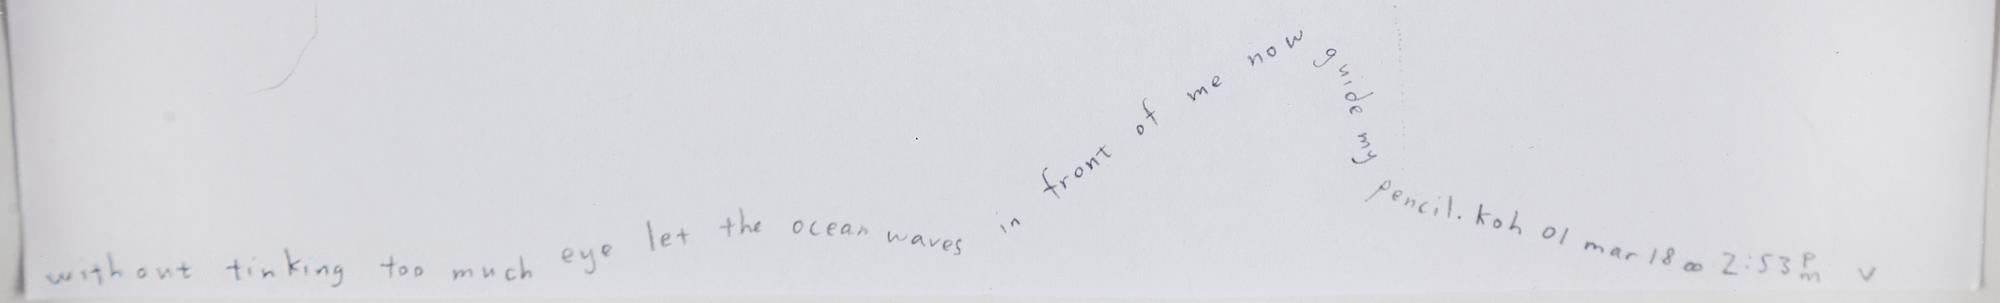 without tinking too much eye let the ocean waves in front of me now guide my pencil. koh 01 mar 18 ∞ 2:53 pm v